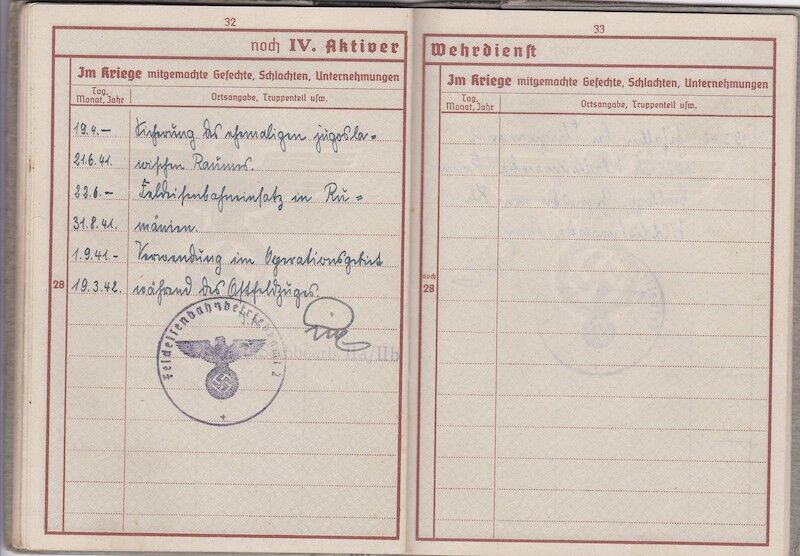 32
noch IV. Aktiver
Im Kriege mitgemachte Gefechte, Schlachten, Unternehmungen
Tag, Monat, Jahr
Ortsangabe, Truppenteil usw.
19.4.— Sicherung des ehemaligen jugosla-
21.6.41. wischen Raumes.
22.6.— Feldeisenbahneinsatz in Ru-
31.8.41. mänien.
1.9.41.— Verwendung im Operationsgebiet
28 19.3.42. während des Ostfeldzuges.
Feldeisenbahnbetriebsamt 2
33
Wehrdienst
Im Kriege mitgemachte Gefechte, Schlachten, Unternehmungen
Tag, Monat, Jahr
Ortsangabe, Truppenteil usw.
noch
28